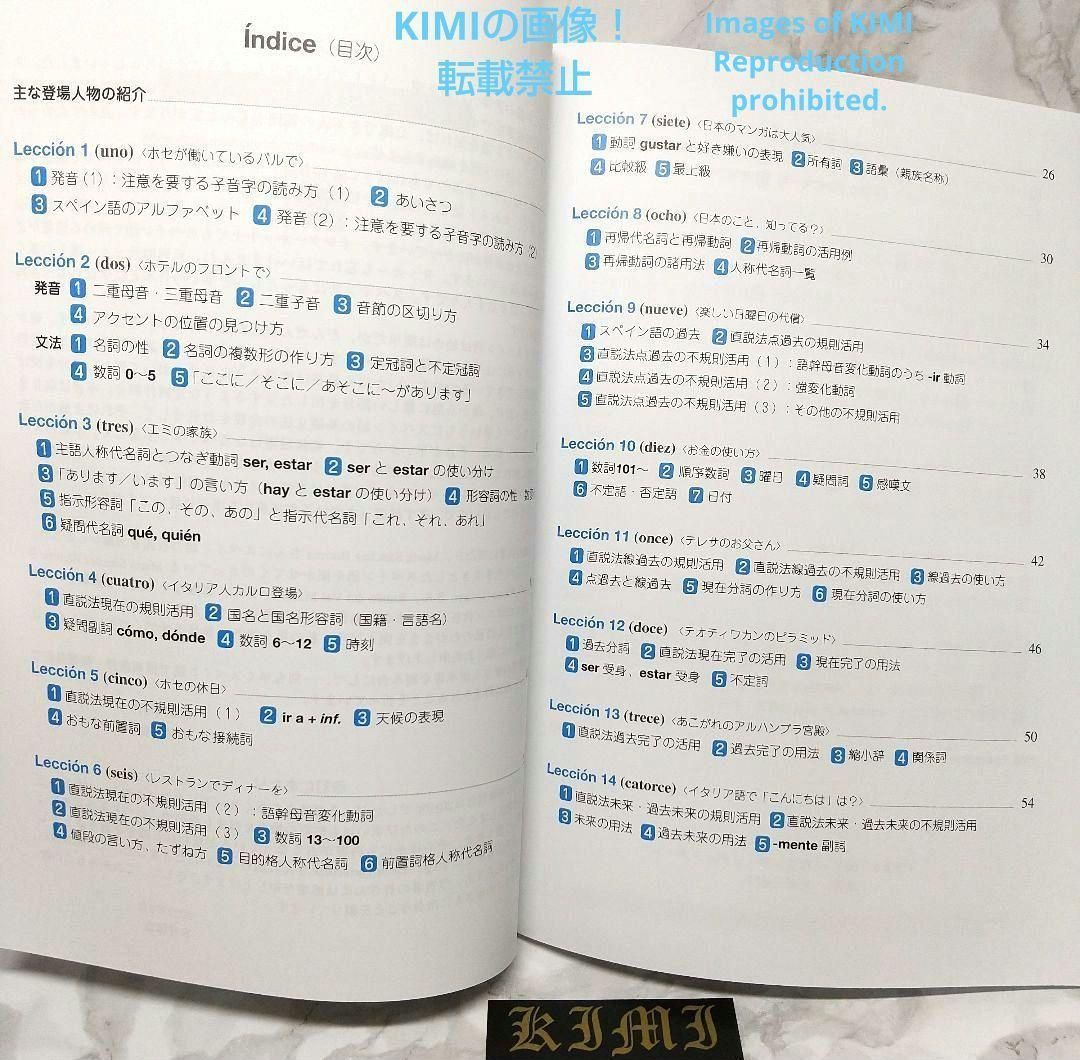 KIMIの画像！
転載禁止
Images of KIMI
Reproduction
prohibited.
Índice（目次）
主な登場人物の紹介
Lección 1 (uno)〈ホセが働いているバルで〉
1 発音（1）：注意を要する子音字の読み方（1） 2 あいさつ
3 スペイン語のアルファベット 4 発音（2）：注意を要する子音字の読み方（2）
Lección 2 (dos)〈ホテルのフロントで〉
発音 1 二重母音・三重母音 2 二重子音 3 音節の区切り方
4 アクセントの位置の見つけ方
文法 1 名詞の性 2 名詞の複数形の作り方 3 定冠詞と不定冠詞
4 数詞 0〜5 5 「ここに／そこに／あそこに〜があります」
Lección 3 (tres)〈エミの家族〉
1 主語人称代名詞とつなぎ動詞 ser, estar 2 ser と estar の使い分け
3 「あります/います」の言い方（hay と estar の使い分け） 4 形容詞の性・数
5 指示形容詞「この、その、あの」と指示代名詞「これ、それ、あれ」
6 疑問代名詞 qué, quién
Lección 4 (cuatro)〈イタリア人カルロ登場〉
1 直説法現在の規則活用 2 国名と国名形容詞（国籍・言語名）
3 疑問副詞 cómo, dónde 4 数詞 6〜12 5 時刻
Lección 5 (cinco)〈ホセの休日〉
1 直説法現在の不規則活用（1） 2 ir a + inf. 3 天候の表現
4 おもな前置詞 5 おもな接続詞
Lección 6 (seis)〈レストランでディナーを〉
1 直説法現在の不規則活用（2）：語幹母音変化動詞
2 直説法現在の不規則活用（3） 3 数詞 13〜100
4 値段の言い方、たずね方 5 目的格人称代名詞 6 前置詞格人称代名詞
Lección 7 (siete)〈日本のマンガは大人気〉 26
1 動詞 gustar と好き嫌いの表現 2 所有詞 3 語彙（親族名称）
4 比較級 5 最上級
Lección 8 (ocho)〈日本のこと、知ってる？〉 30
1 再帰代名詞と再帰動詞 2 再帰動詞の活用例
3 再帰動詞の諸用法 4 人称代名詞一覧
Lección 9 (nueve)〈楽しい日曜日の代償〉 34
1 スペイン語の過去 2 直説法点過去の規則活用
3 直説法点過去の不規則活用（1）：語幹母音変化動詞のうち -ir 動詞
4 直説法点過去の不規則活用（2）：強変化動詞
5 直説法点過去の不規則活用（3）：その他の不規則活用
Lección 10 (diez)〈お金の使い方〉 38
1 数詞101〜 2 順序数詞 3 曜日 4 疑問詞 5 感嘆文
6 不定語・否定語 7 日付
Lección 11 (once)〈テレサのお父さん〉 42
1 直説法線過去の規則活用 2 直説法線過去の不規則活用 3 線過去の使い方
4 点過去と線過去 5 現在分詞の作り方 6 現在分詞の使い方
Lección 12 (doce)〈テオティワカンのピラミッド〉 46
1 過去分詞 2 直説法現在完了の活用 3 現在完了の用法
4 ser 受身、estar 受身 5 不定詞
Lección 13 (trece)〈あこがれのアルハンブラ宮殿〉 50
1 直説法過去完了の活用 2 過去完了の用法 3 縮小辞 4 関係詞
Lección 14 (catorce)〈イタリア語で「こんにちは」は？〉 54
1 直説法未来・過去未来の規則活用 2 直説法未来・過去未来の不規則活用
3 未来の用法 4 過去未来の用法 5 -mente 副詞
KIMI